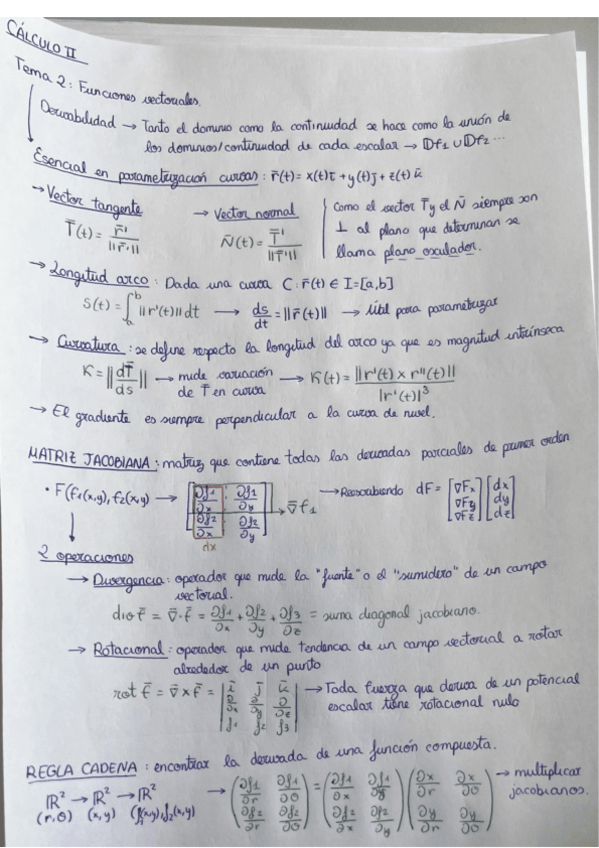 CÁLCULO II
Tema 2: Funciones vectoriales.
Derivabilidad → Tanto el dominio como la continuidad se hace como la unión de
los dominios/continuidad de cada escalar → Df1 ∪ Df2 ...
Esencial en parametrización curvas: r̄(t) = x(t)ī + y(t)j̄ + z(t)k̄
→ Vector tangente
T̄(t) = r̄' / ||r̄'||
→ Vector normal
N̄(t) = T̄' / ||T̄'||
como el vector T̄ y el N̄ siempre son
⊥ al plano que determinan se
llama plano osculador.
→ Longitud arco: Dada una curva C: r̄(t) ∈ I=[a,b]
S(t) = ∫_a^b ||r'(t)|| dt → ds/dt = ||r̄(t)|| → útil para parametrizar
→ Curvatura: se define respecto la longitud del arco ya que es magnitud intrínseca
K = ||dT̄/ds|| → mide variación de T̄ en curva → K(t) = ||r'(t) × r''(t)|| / |r'(t)|^3
→ El gradiente es siempre perpendicular a la curva de nivel.
MATRIZ JACOBIANA: matriz que contiene todas las derivadas parciales de primer orden
• F(f1(x,y), f2(x,y) → [∂f1/∂x ∂f1/∂y; ∂f2/∂x ∂f2/∂y] → ∇̄f1 → Reescribiendo dF = [∇Fx; ∇Fy; ∇Fz] [dx; dy; dz]
dx
2 operaciones
→ Divergencia: operador que mide la "fuente" o el "sumidero" de un campo
vectorial.
div f̄ = ∇̄·f̄ = ∂f1/∂x + ∂f2/∂y + ∂f3/∂z = suma diagonal jacobiano.
→ Rotacional: operador que mide tendencia de un campo vectorial a rotar
alrededor de un punto
rot f̄ = ∇̄ × f̄ = |ī j̄ k̄; ∂/∂x ∂/∂y ∂/∂z; f1 f2 f3| → Toda fuerza que deriva de un potencial
escalar tiene rotacional nulo
REGLA CADENA: encontrar la derivada de una función compuesta.
ℝ² → ℝ² → ℝ²
(r,θ) (x,y) (f1(x,y), f2(x,y)
→ (∂f1/∂r ∂f1/∂θ; ∂f2/∂r ∂f2/∂θ) = (∂f1/∂x ∂f1/∂y; ∂f2/∂x ∂f2/∂y) (∂x/∂r ∂x/∂θ; ∂y/∂r ∂y/∂θ) → multiplicar
jacobianos.